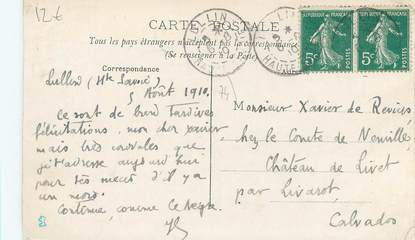 12 €
CARTE POSTALE
Tous les pays étrangers n'acceptent pas la correspondance
(Se renseigner à la Poste)
Correspondance
5c POSTES
5c POSTES
HAUTE
74
Lullin (Hte Savoie)
5 Août 1910.
Ce sont de bien tardives
félicitations, mon cher Xavier
mais très cordiales que
je t'adresse aujourd'hui
pour tes succès d'il y a
un mois.
Continue, comme
Monsieur Xavier de Reviers
chez le Comte de Neuville
Château de Livet
par Livarot
Calvados